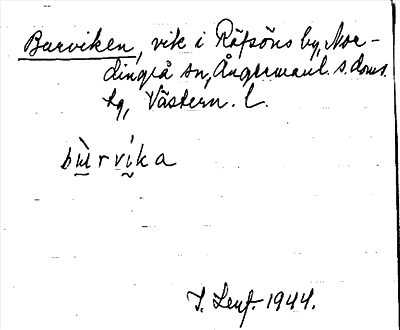 Burviken, vik i Räfsöns by, Nor-
dingrå sn, Ångermanl. s. doms.
tg, Västern. l.
bùrvíka
J. Lenf. 1944.